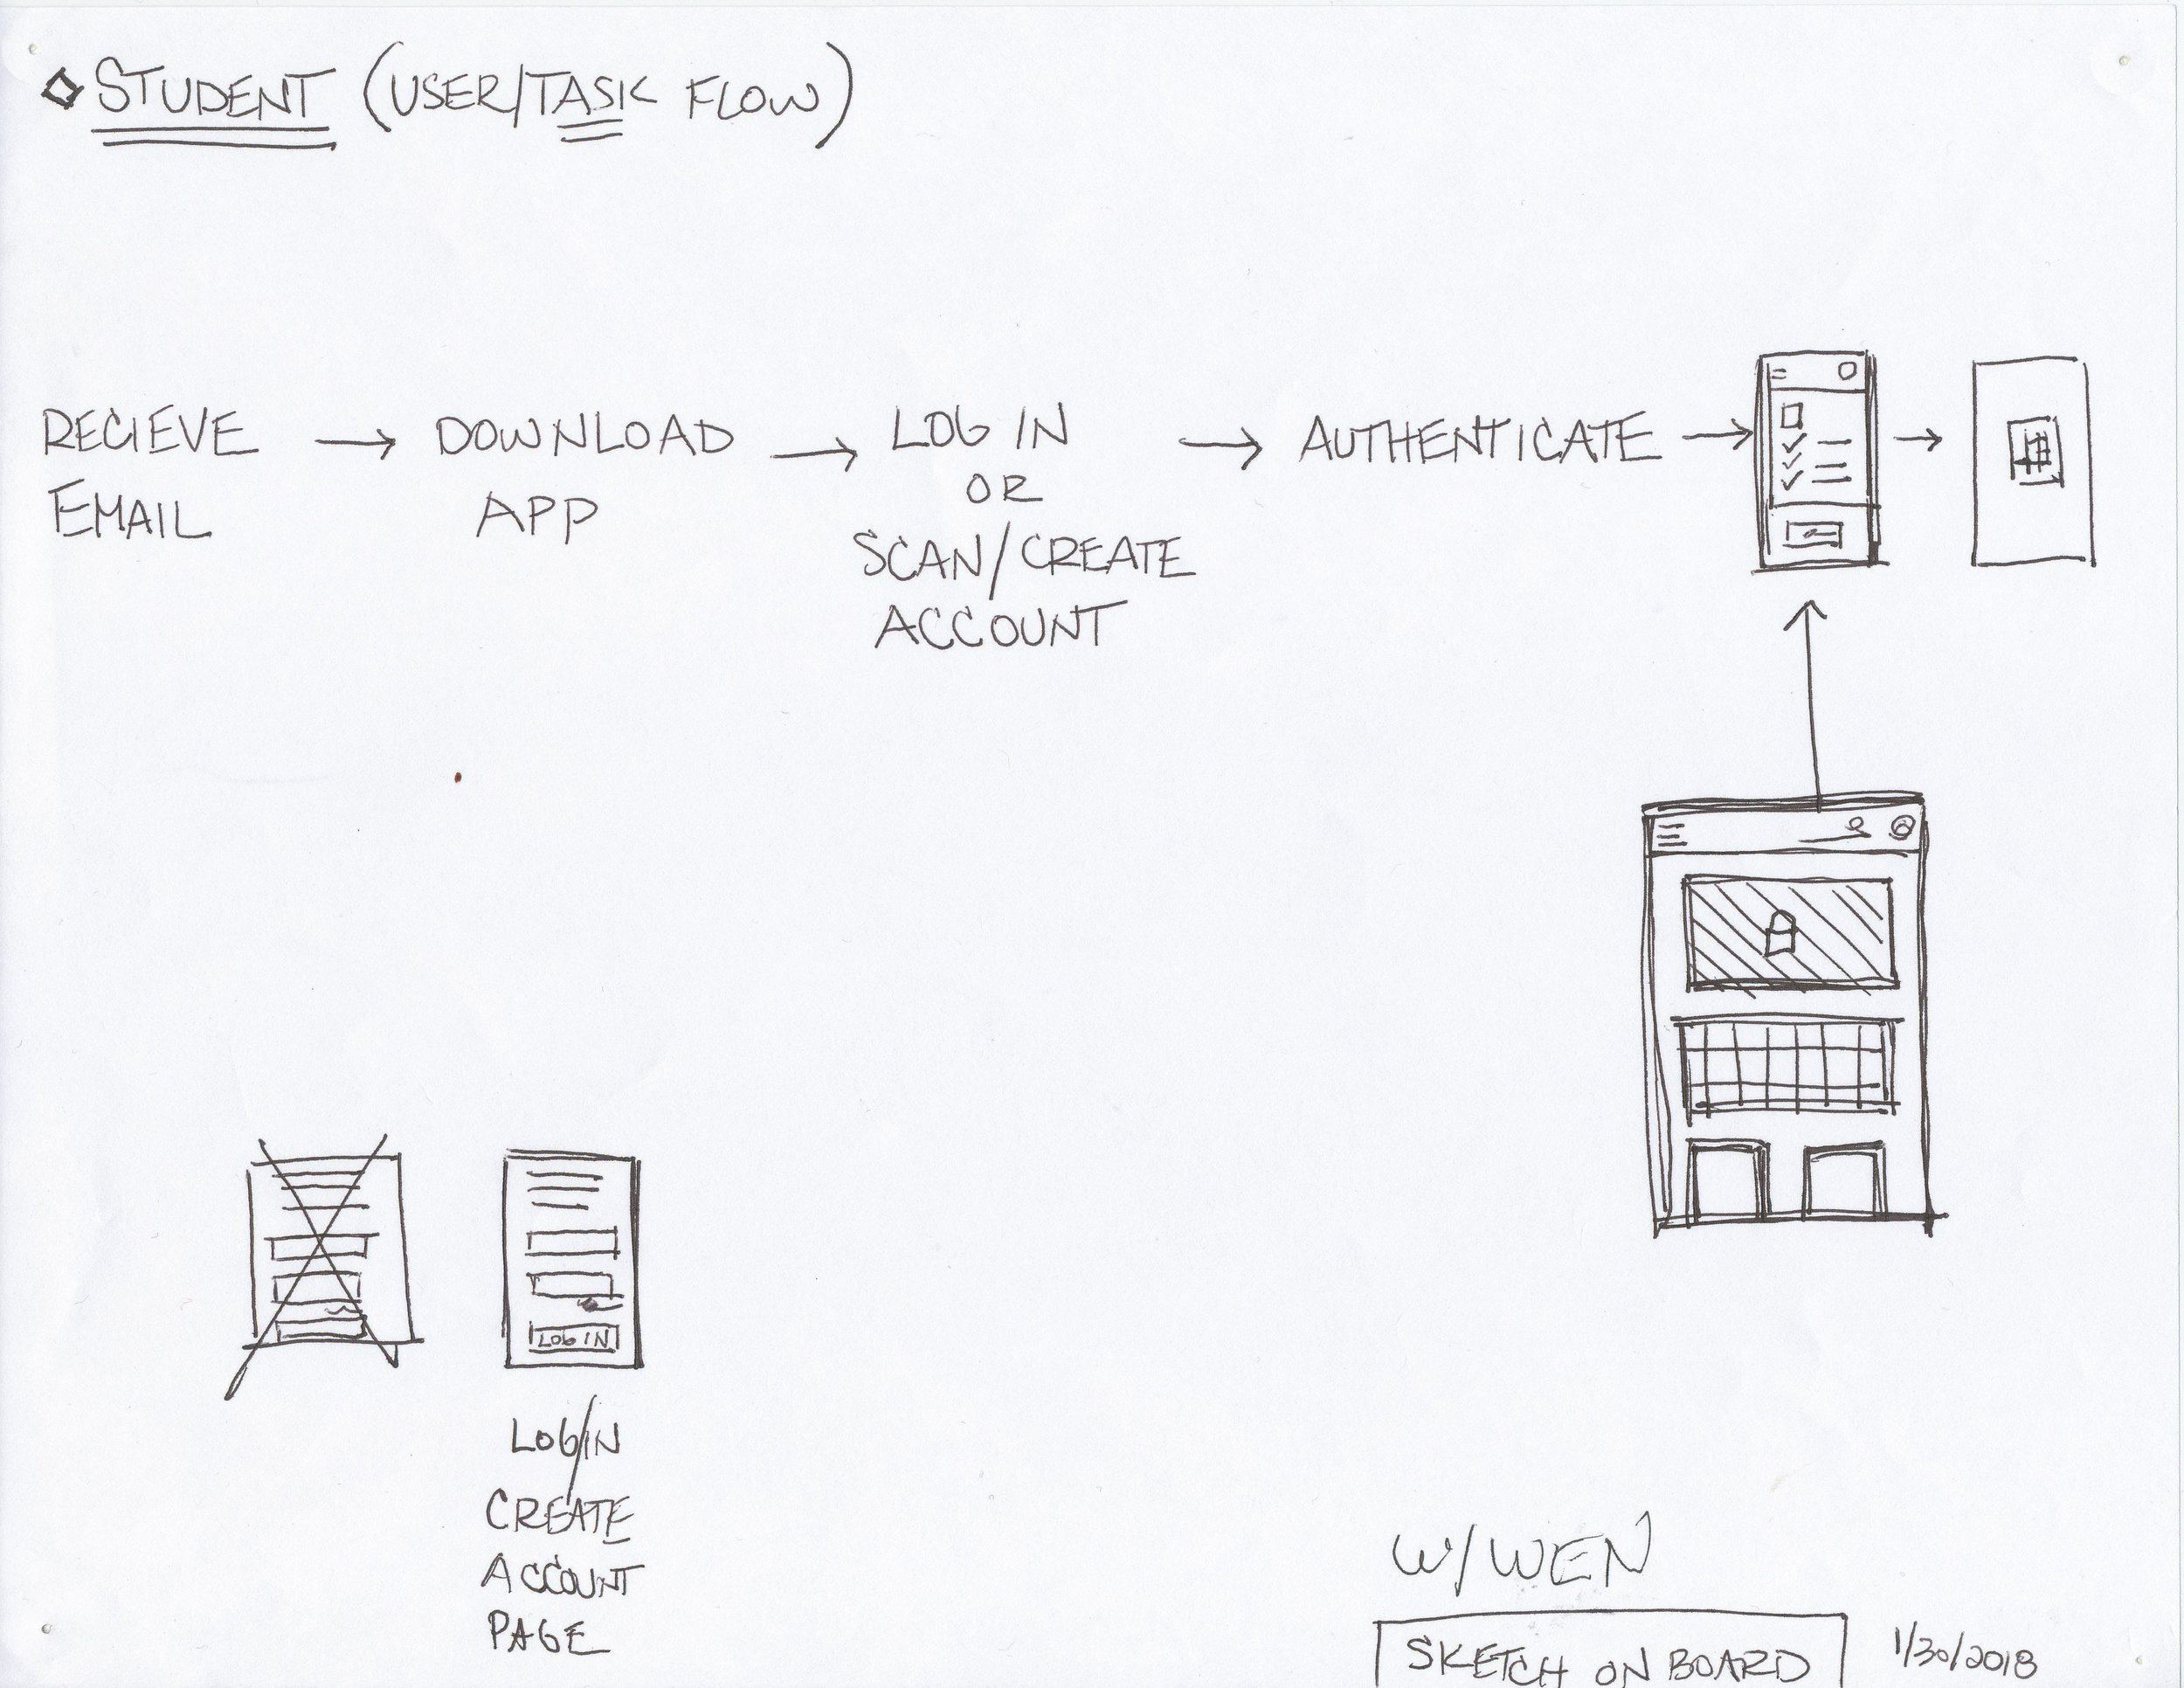 STUDENT (USER/TASK FLOW)
RECIEVE
EMAIL
DOWNLOAD
APP
LOG IN
OR
SCAN/CREATE
ACCOUNT
AUTHENTICATE
LOG IN
LOG/IN
CREATE
ACCOUNT
PAGE
W/WEN
SKETCH ON BOARD
1/30/2018